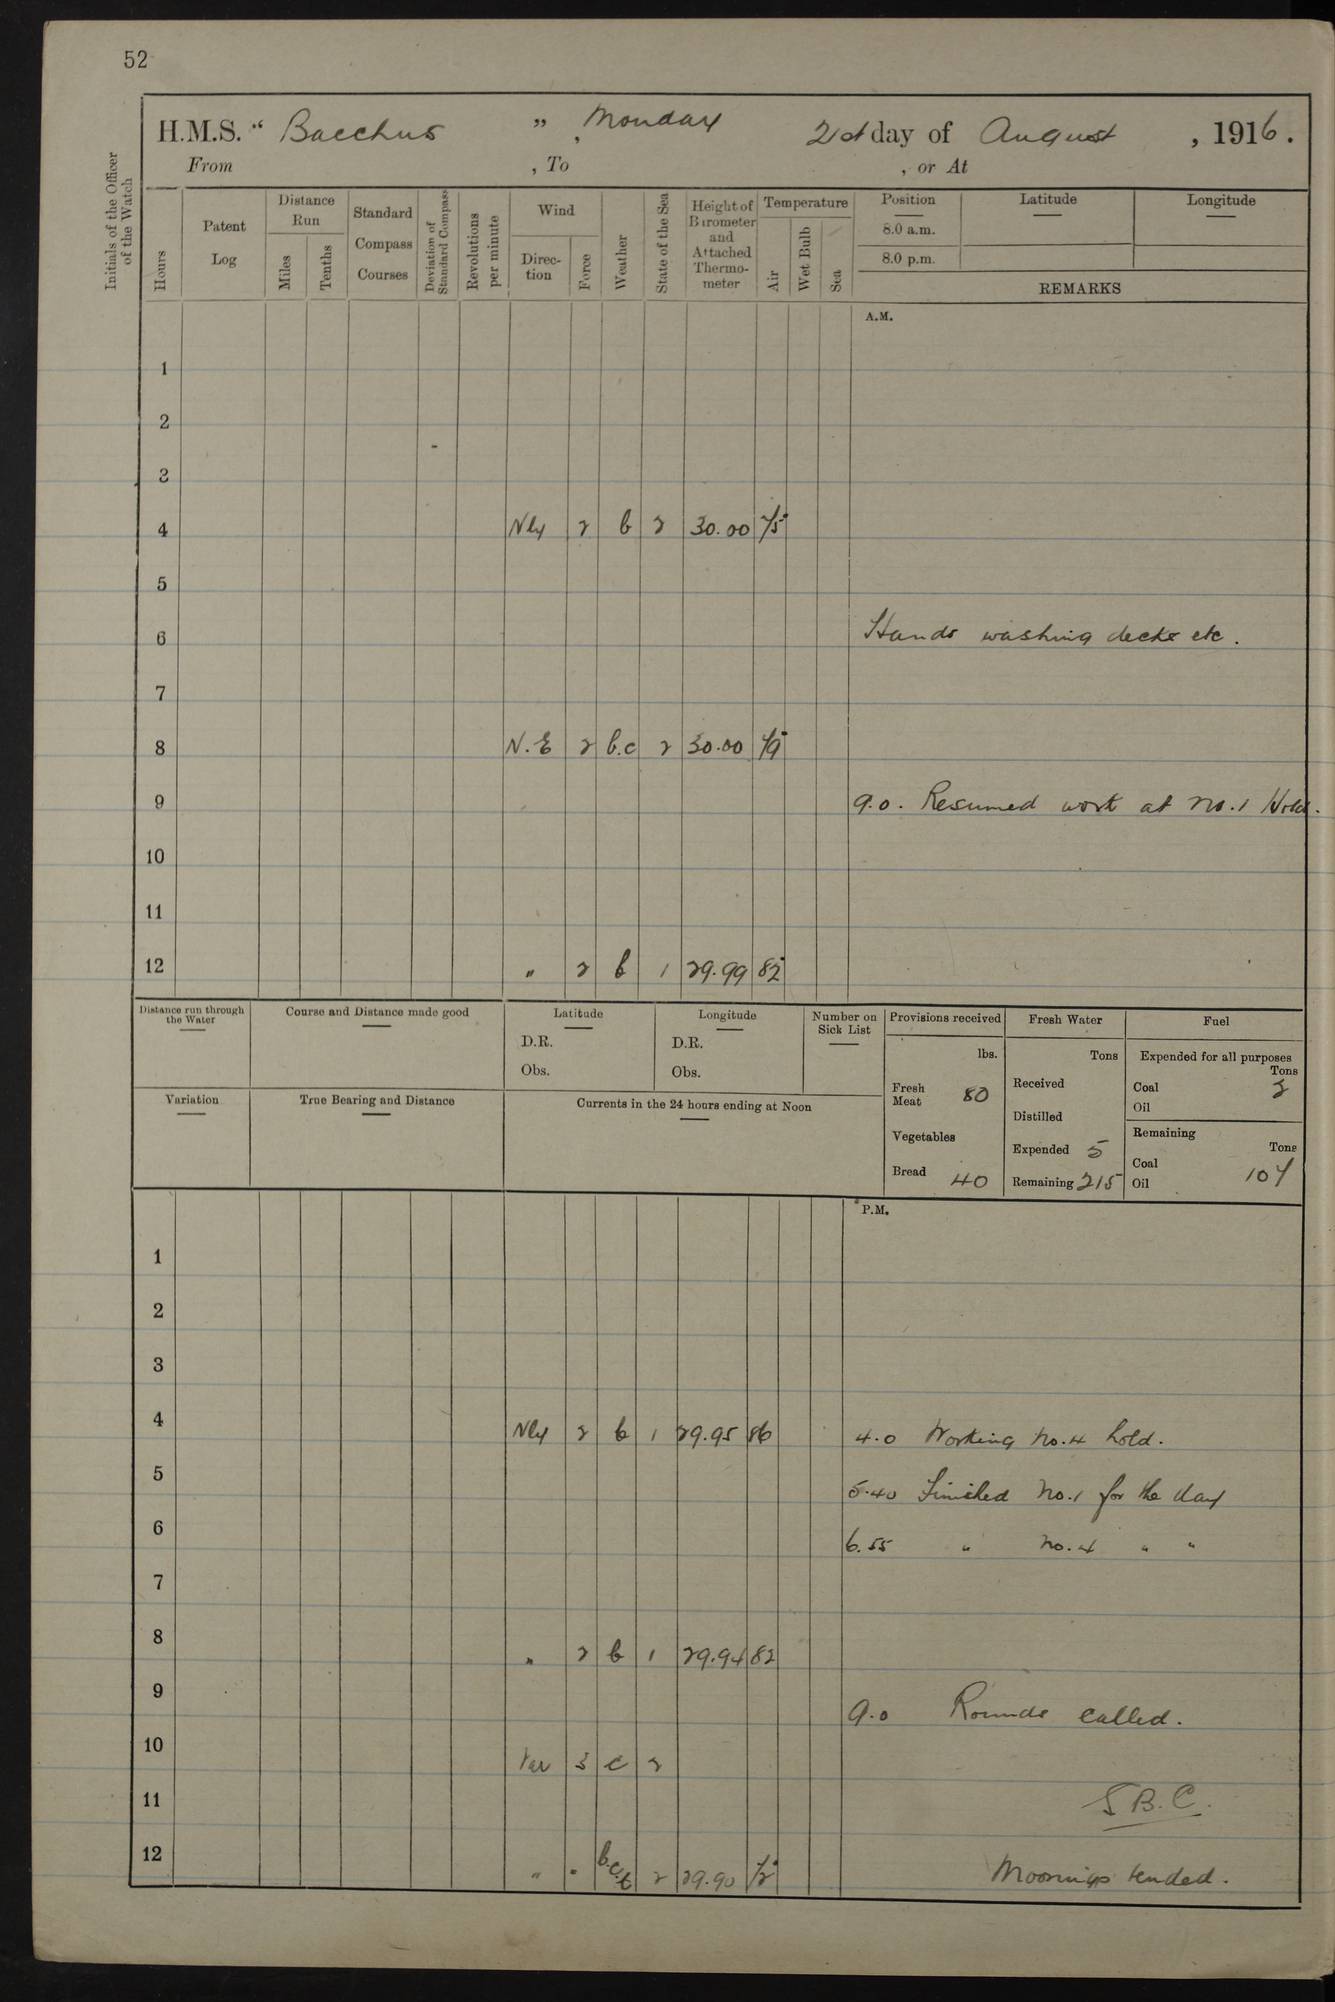 52
H.M.S. “ Bacchus ” , Monday 21st day of August , 1916.
From , To , or At
Initials of the Officer of the Watch
Hours
Patent Log
Distance Run
Miles
Tenths
Standard Compass Courses
Deviation of Standard Compass
Revolutions per minute
Wind
Direc-tion
Force
Weather
State of the Sea
Height of Barometer and Attached Thermo-meter
Temperature
Air
Wet Bulb
Sea
Position
8.0 a.m.
8.0 p.m.
Latitude
Longitude
REMARKS
A.M.
1
2
3
4 Nly 2 b 2 30.00 75
5
6 Hands washing decks etc.
7
8 N.E 2 b.c 2 30.00 79
9 9.0. Resumed work at No.1 Hold.
10
11
12 " 2 b 1 29.99 82
Distance run through the Water
Course and Distance made good
Latitude
D.R.
Obs.
Longitude
D.R.
Obs.
Number on Sick List
Variation
True Bearing and Distance
Currents in the 24 hours ending at Noon
Provisions received
lbs.
Fresh Meat 80
Vegetables
Bread 40
Fresh Water
Tons
Received
Distilled
Expended 5
Remaining 215
Fuel
Expended for all purposes
Tons
Coal
Oil
Remaining
Tons
Coal 107
Oil
P.M.
1
2
3
4 Nly 2 b 1 29.95 86 4.0 Working No.4 hold.
5 5.40 Finished No.1 for the day
6 6.55 " No.4 " "
7
8 " 2 b 1 29.94 82
9 9.0 Rounds called.
10 Var 3 c 2
11 S B.C.
12 " " b.c.t 2 29.90 72 Moorings tended.